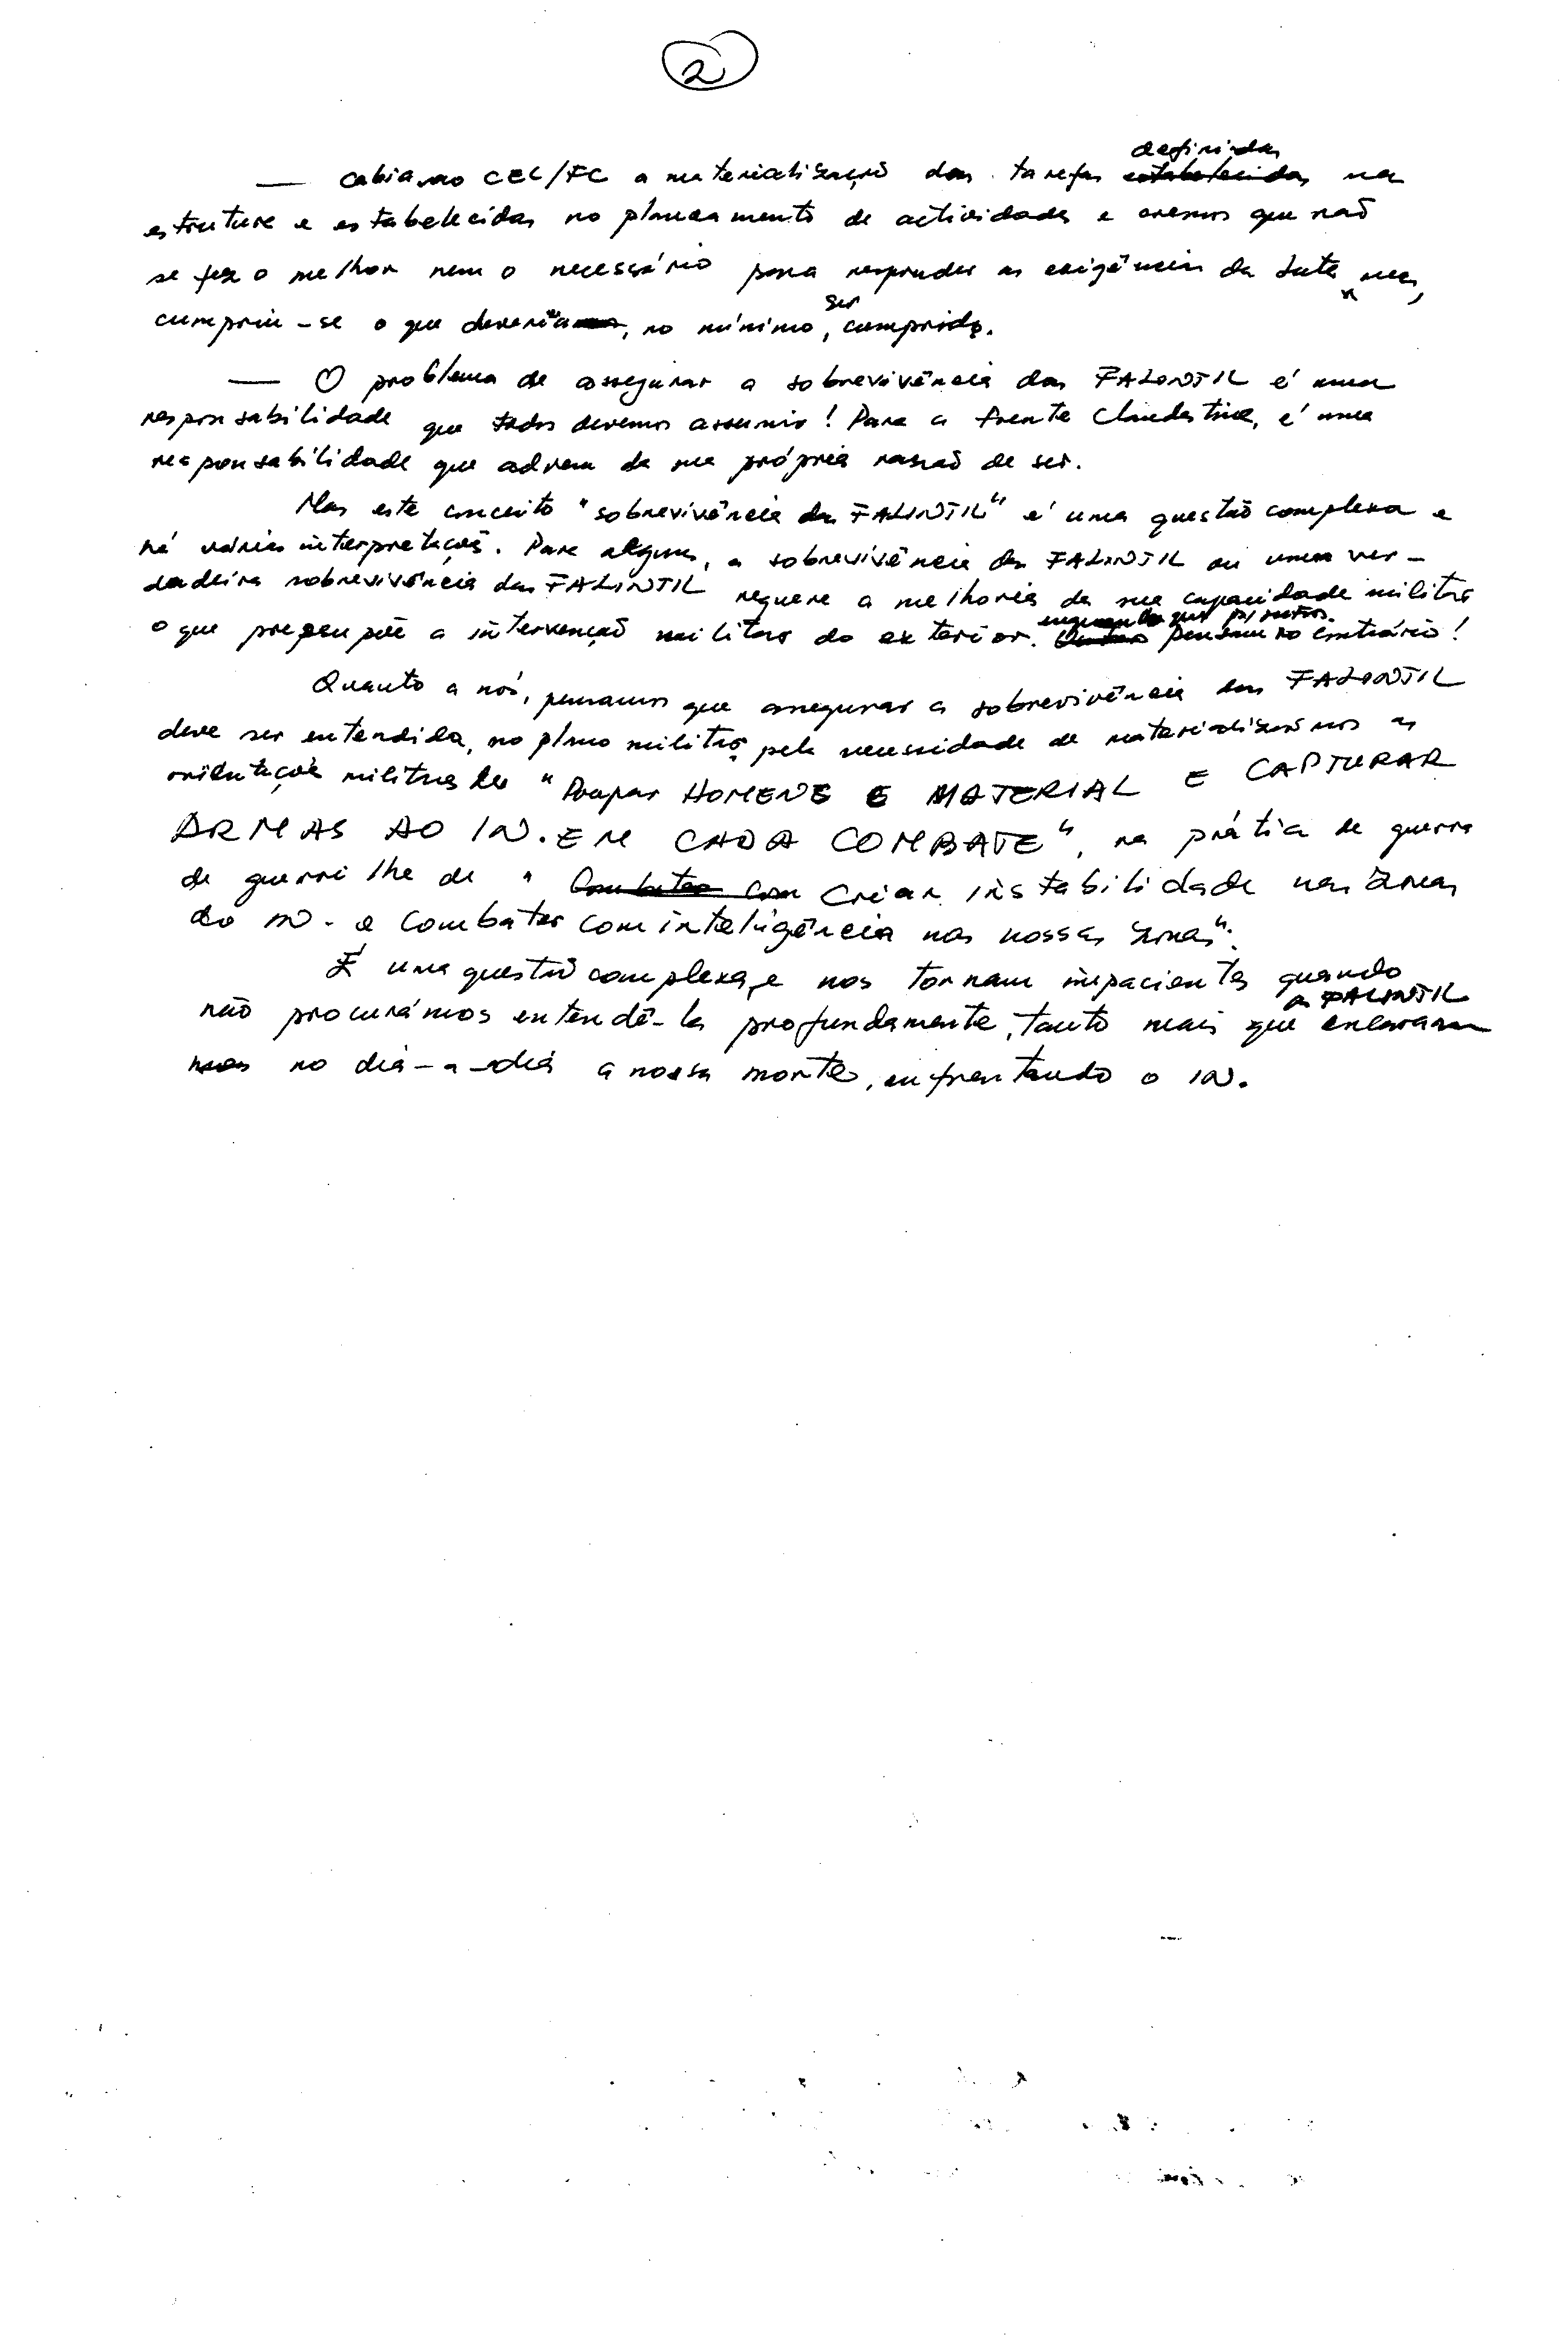 2
— Cabia ao CEC/FC a materialização das tarefas definidas na
estrutura e estabelecidas no planeamento de actividades e cremos que não
se fez o melhor nem o necessário para responder as exigências da Luta, mas,
cumpriu-se o que deveria, no mínimo, ser cumprido.
— O problema de assegurar a sobrevivência das FALINTIL é uma
responsabilidade que todos devemos assumir! Para a frente Clandestina, é uma
responsabilidade que advem da sua própria razão de ser.
Mas este conceito "sobrevivência das FALINTIL" é uma questão complexa e
há várias interpretações. Para alguns, a sobrevivência das FALINTIL ou uma ver-
dadeira sobrevivência das FALINTIL requere a melhoria da sua capacidade militar
o que pressupõe a intervenção militar do exterior. enquanto que p/ outros pensam no contrário!
Quanto a nós, pensamos que assegurar a sobrevivência das FALINTIL
deve ser entendida, no plano militar, pela necessidade de materializarmos as
orientações militares de "Poupar HOMENS E MATERIAL E CAPTURAR
ARMAS AO IN. EM CADA COMBATE", na prática de guerra
de guerrilha de " Criar instabilidade nas áreas
do IN. e Combater com inteligência nas nossas zonas".
É uma questão complexa, e nos tornam impacientes quando
não procurámos entendê-la profundamente, tanto mais que as FALINTIL encaram
no dia-a-dia a nossa morte, enfrentando o IN.